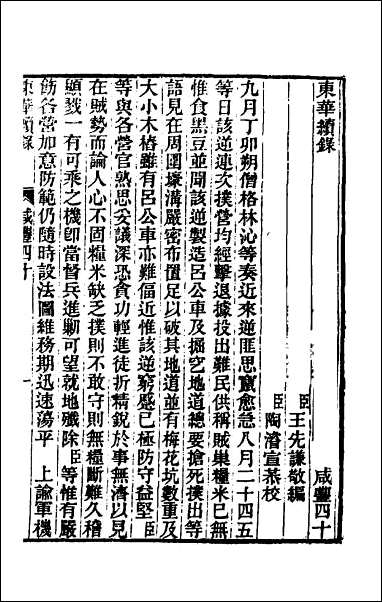 東華續錄　咸豐四十
臣王先謙敬編
臣陶濬宣恭校
九月丁卯朔僧格林沁等奏近來逆匪思竄愈急八月二十四五
等日該逆連次撲營均經擊退據投出難民供稱賊巢糧米已無
惟食黑豆並聞該逆製造呂公車及掘空地道總要搶死撲出等
語見在周圍壕溝嚴密布置足以破其地道並有梅花坑數重及
大小木樁雖有呂公車亦難偪近惟該逆窮蹙已極防守益堅臣
等與各營官熟思妥議深恐貪功輕進徒折精銳於事無濟以見
在賊勢而論人心不固糧米缺乏撲則不敢守則無糧斷難久稽
顯戮一有可乘之機卽當督兵進勦可望就地殲除臣等惟有嚴
飭各營加意防範仍隨時設法圖維務期迅速蕩平　上諭軍機
東華續錄　咸豐四十　一